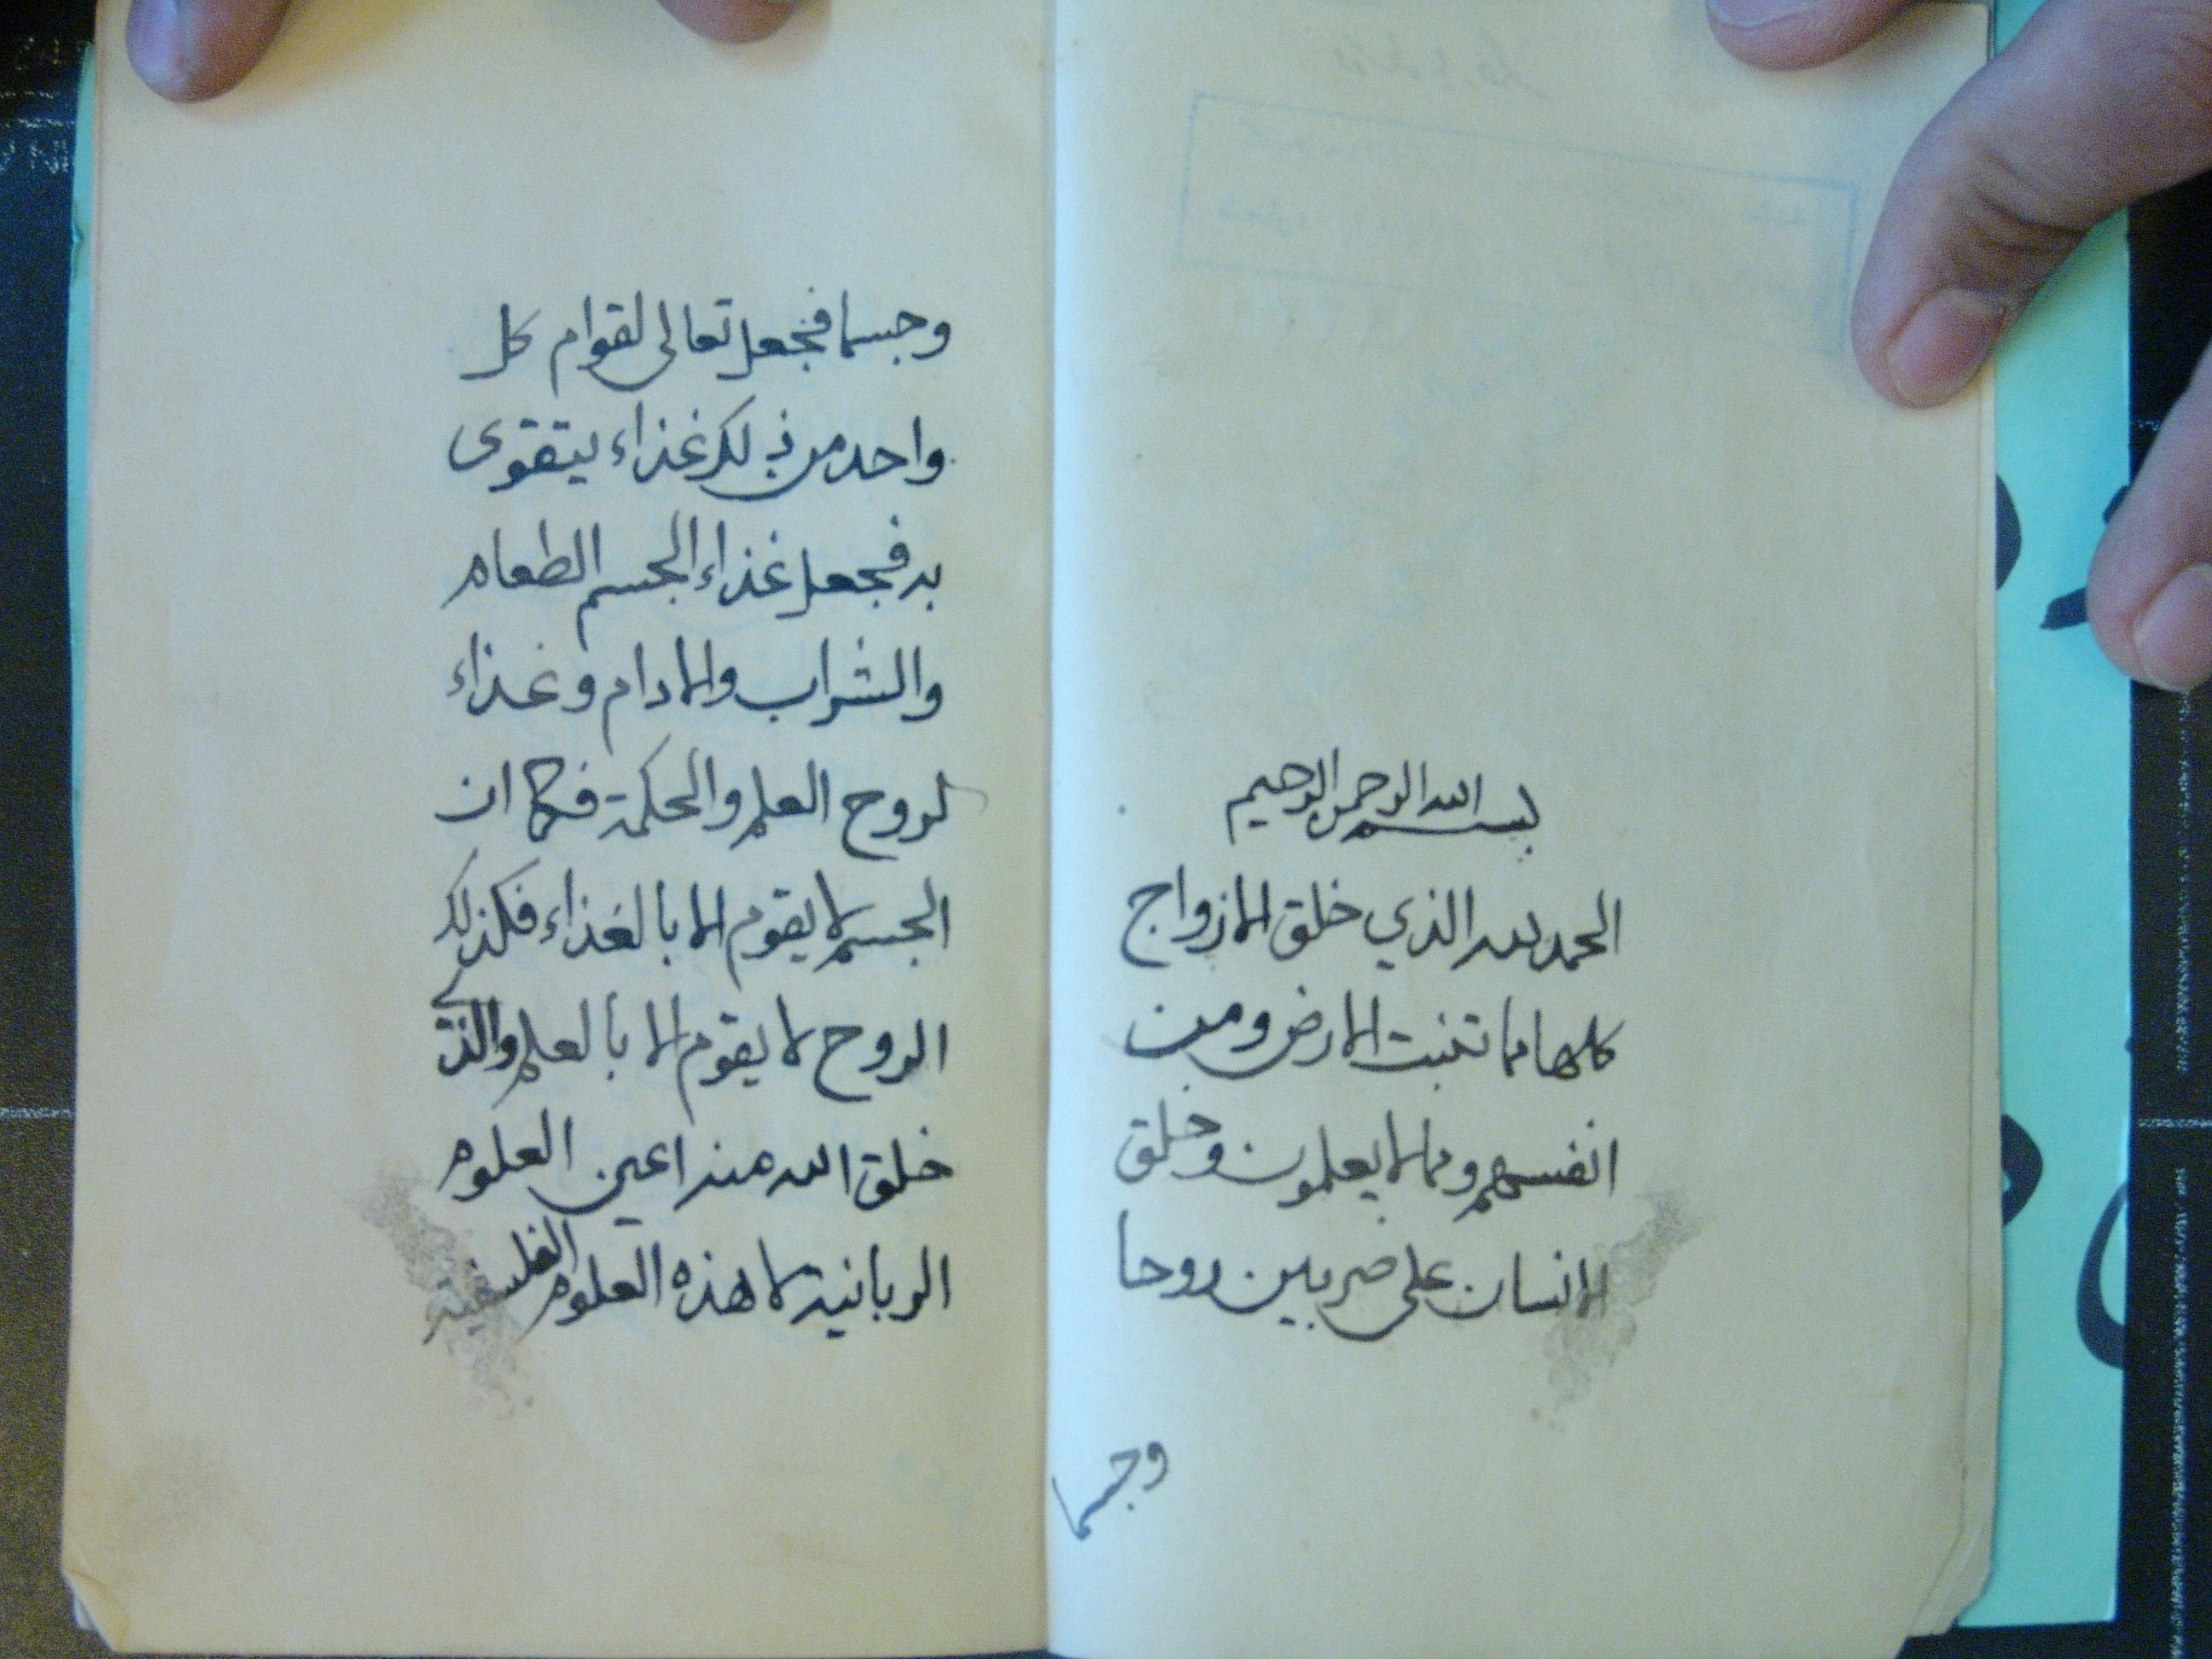 بسم الله الرحمن الرحيم
الحمد لله الذي خلق الازواج
كلها مما تنبت الارض ومن
انفسهم ومما لا يعلمون وخلق
الانسان على ضربين روحا
وجسما
وجسما فجعل تعالى لقوام كل
واحد من ذلك غذاء يتقوى
به فجعل غذاء الجسم الطعام
والشراب والادام وغذاء
لروح العلم والحكمة فكما ان
الجسم لا يقوم الا بالغذاء فكذلك
الروح لا يقوم الا بالعلم والذي
خلق الله منه اعين العلوم
الربانية لا هذه العلوم الفلسفية